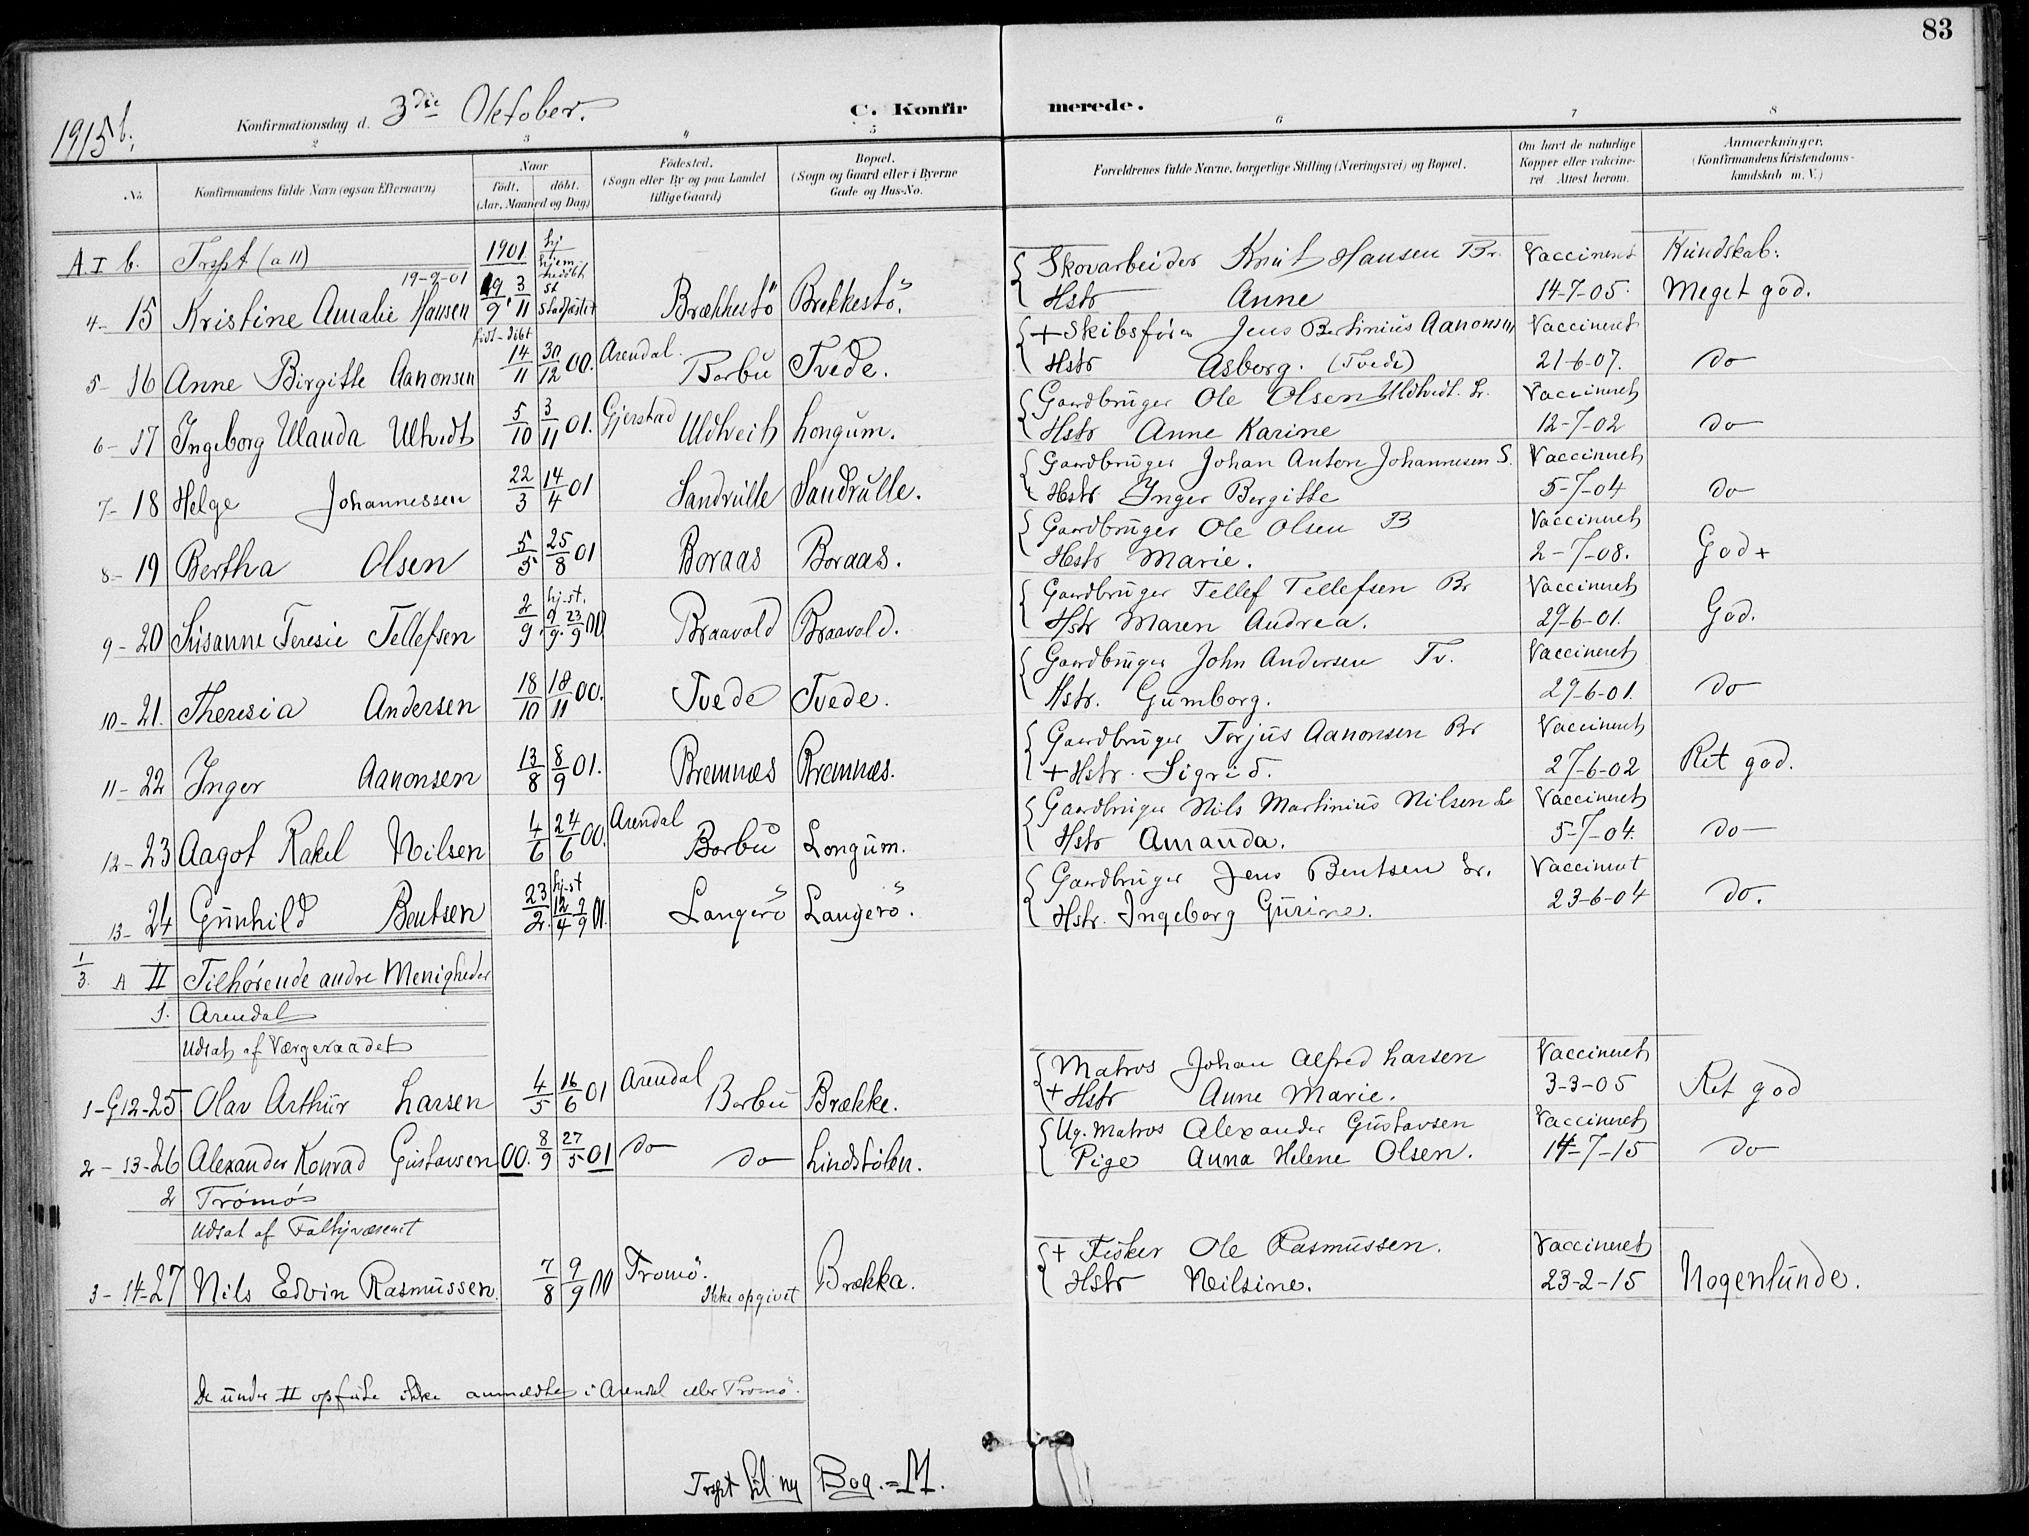 83
1915 b;
Konfirmationsdag d. 3die Oktober.
C. Konfirmerede.
2 3 4 5 6 7 8
No. | Konfirmandens fulde Navn (ogsaa Efternavn) | Naar født. døbt. (Aar, Maaned og Dag) | Fødested. (Sogn eller By og paa Landet tillige Gaard) | Bopæl. (Sogn og Gaard eller i Byerne Gade og Hus-No. | Forældrenes fulde Navne, borgerlige Stilling (Næringsvei) og Bopæl. | Om havt de naturlige Kopper eller vakcineret Attest herom. | Anmærkninger. (Konfirmandens Kristendomskundskab m. V.)
A. I b. Trspt (a 11) 1901 Kundskab:
4- 15 Kristine Amalie Hansen 19-9-01 19/9 3/11 hjemdøbt stadfæstet Brækkestö Brekkestö. Skovarbeider Knut Hansen Br. Vaccineret Meget god.
Hstr Anne 14-7-05.
født-døbt
5- 16 Anne Birgitte Aanonsen 14/11 30/12 00. Arendal. Barbu Tvede. + Skibsfører Jens Bertinius Aanonsen Vaccineret do
Hstr Asborg. (Tvede) 21-6-07.
6- 17 Ingeborg Ulanda Ultvedt 5/10 3/11 01. Gjerstad Uldtveit Longum. Gaardbruger Ole Olsen Uldtvedt. Lr. Vaccineret do
Hstr Anne Karine 12-7-02
7- 18 Helge Johannessen 22/3 14/4 01 Sandrulle Sandrulle. Gaardbruger Johan Anton Johannesen S. Vaccineret do
Hstr Inger Bergitte 5-7-04
8- 19 Bertha Olsen 5/5 25/8 01 Boraas Boraas. Gaardbruger Ole Olsen B Vaccineret God +
Hstr Marie. 2-7-08.
9- 20 Susanne Teresie Tellefsen 2/9 hj. 9/9 st. 23/9 00 Braavold Braavold. Gaardbruger Tellef Tellefsen Br Vaccineret God.
Hstr Maren Andrea. 29-6-01.
10- 21. Theresia Andersen 18/10 18/11 00. Tvede Tvede. Gaardbruger John Andersen Tv. Vaccineret do
Hstr. Gumborg. 29-6-01.
11- 22 Inger Aanonsen 13/8 8/9 01. Bremnæs Bremnæs. Gaardbruger Torjus Aanonsen Br Vaccineret Ret god.
+ Hstr. Sigrid. 27-6-02
12- 23 Aagot Rakel Nilsen 4/6 24/6 00. Arendal Barbu Longum. Gaardbruger Nils Martinius Nilsen Lr Vaccineret do
Hstr Amanda. 5-7-04.
13- 24 Gunhild Bentsen 23/2. hj-st 12/4 9/9 01. Langerö Langerö. Gaardbruger Jens Bentsen Lr. Vaccineret do.
Hstr. Ingeborg Gurine. 23-6-04
1/3. A II Tilhørende andre Menigheder
1. Arendal
Udsat af Værgeraadet
1-G12-25 Olav Arthur Larsen 4/5 16/6 01 Arendal Barbu Brække. Matros Johan Alfred Larsen Vaccineret Ret god
+ Hstr Anne Marie. 3-3-05
2-13-26 Alexander Konrad Gustavsen 00. 8/9 27/5 01 do do Lindstølen. Ug. Matros Alexander Gustavsen Vaccineret do
Pige Anna Helene Olsen. 14-7-15
2 Tromö
Udsat af Fattigvæsenet
3-14-27 Nils Edvin Rasmussen. 7/8 9/9 00 Tromö. Ikke opgivet Brækka. + Fisker Ole Rasmussen. Vaccineret Nogenlunde.
Hstr Nilsine. 23-2-15
De under II opførte ikke anmeldte i Arendal eller Tromö.
Trspt til ny Bog. = M.